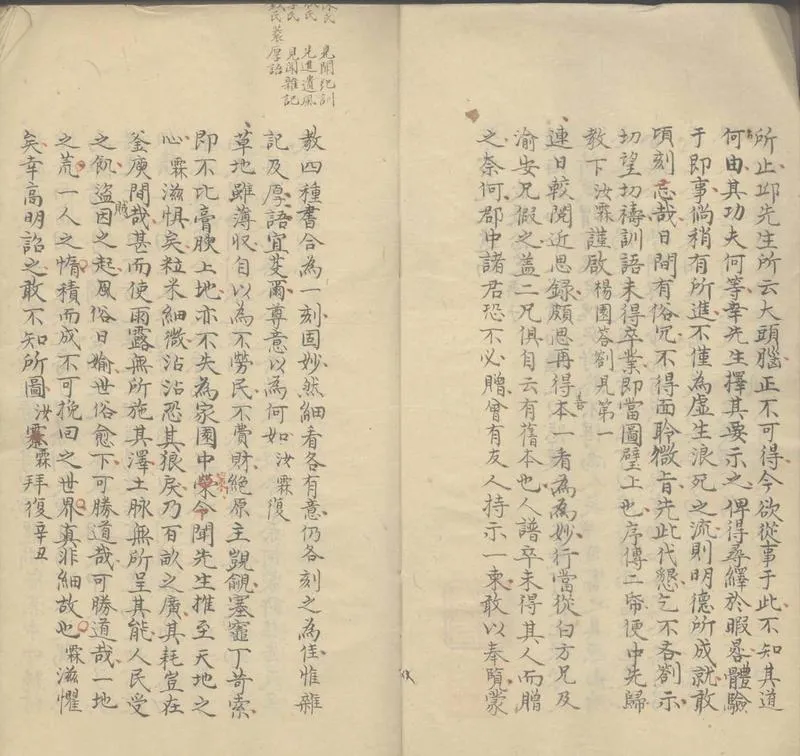 所止邱先生所云大頭腦正不可得今欲從事于此不知其道
何由其功夫何等幸先生擇其要示之俾得尋繹於暇晷體驗
于即事倘稍有所進不僅為虛生浪死之流則明德所成就敢
頃刻忘哉日間有俗冗不得面聆微旨先此代懇乞不吝劄示
切望切禱訓語未得卒業即當圖璧上也序傳二帋便中先歸
教下汝霖謹啟楊園答劄見第一
連日較閱近思錄頗思再得善本一看為妙行當從白方兄及
渝安兄假之蓋二兄俱自云有舊本也人譜卒未得其人而贈
之柰何郡中諸君恐不必贈曾有友人持示一柬敢以奉覽蒙
教四種書合為一刻固妙然細看各有意仍各刻之為佳惟雜
記及厚語宜芟爾尊意以為何如汝霖復
草地雖薄収自以為不勞民不費財絕原主覬覦塞竈丁苛索
即不比膏腴上地亦不失為家園中榮今聞先生推至天地之
心霖滋惧矣粒米細微沾沾恐其狼戾乃百畝之廣其耗豈在
釜庾間哉甚而使雨露無所施其澤土脉無所呈其能人民受
之飢盜賊因之起風俗日婾世俗愈下可勝道哉可勝道哉一地
之荒一人之惰積而成不可挽回之世界真非細故也霖滋懼
矣幸高明詔之敢不知所圖汝霖拜復辛丑
見聞紀訓
先進遺風
見聞雜記
厚語